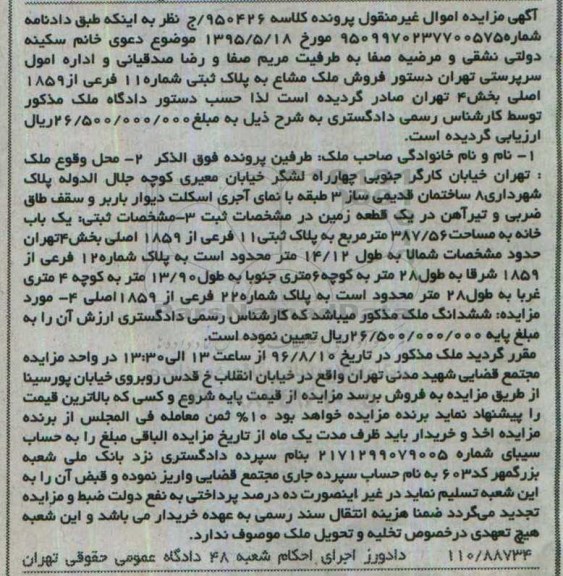 آگهی مزایده اموال غیرمنقول پرونده کلاسه ۹۵۰۴۲۶/ج نظر به اینکه طبق دادنامه
شماره۹۵۰۹۹۷۰۲۳۷۷۰۰۵۷۵ مورخ ۱۳۹۵/۵/۱۸ موضوع دعوی خانم سکینه
دولتی نشقی و مرضیه صفا به طرفیت مریم صفا و رضا صدقیانی و اداره امول
سرپرستی تهران دستور فروش ملک مشاع به پلاک ثبتی شماره۱۱ فرعی از۱۸۵۹
اصلی بخش۴ تهران صادر گردیده است لذا حسب دستور دادگاه ملک مذکور
توسط کارشناس رسمی دادگستری به شرح ذیل به مبلغ۲۶/۵۰۰/۰۰۰/۰۰۰ریال
ارزیابی گردیده است.
۱- نام و نام خانوادگی صاحب ملک: طرفین پرونده فوق الذکر ۲- محل وقوع ملک
: تهران خیابان کارگر جنوبی چهارراه لشگر خیابان معیری کوچه جلال الدوله پلاک
شهرداری۸ ساختمان قدیمی ساز ۳ طبقه با نمای آجری اسکلت دیوار باربر و سقف طاق
ضربی و تیرآهن در یک قطعه زمین در مشخصات ثبت ۳-مشخصات ثبتی: یک باب
خانه به مساحت۳۸۷/۵۶ مترمربع به پلاک ثبتی۱۱ فرعی از ۱۸۵۹ اصلی بخش۴تهران
حدود مشخصات شمالا به طول ۱۴/۱۲ متر محدود است به پلاک شماره۱۲ فرعی از
۱۸۵۹ شرقا به طول۲۸ متر به کوچه۶متری جنوبا به طول۱۳/۹۰ متر به کوچه ۴ متری
غربا به طول۲۸ متر محدود است به پلاک شماره۲۲ فرعی از ۱۸۵۹اصلی ۴- مورد
مزایده: ششدانگ ملک مذکور میباشد که کارشناس رسمی دادگستری ارزش آن را به
مبلغ پایه ۲۶/۵۰۰/۰۰۰/۰۰۰ریال تعیین نموده است.
مقرر گردید ملک مذکور در تاریخ ۹۶/۸/۱۰ از ساعت ۱۳ الی۱۳:۳۰ در واحد مزایده
مجتمع قضایی شهید مدنی تهران واقع در خیابان انقلاب خ قدس روبروی خیابان پورسینا
از طریق مزایده به فروش برسد مزایده از قیمت پایه شروع و کسی که بالاترین قیمت
را پیشنهاد نماید برنده مزایده خواهد بود ۱۰% ثمن معامله فی المجلس از برنده
مزایده اخذ و خریدار باید ظرف مدت یک ماه از تاریخ مزایده الباقی مبلغ را به حساب
سیبای شماره ۲۱۷۱۲۹۹۰۷۹۰۰۵ بنام سپرده دادگستری نزد بانک ملی شعبه
بزرگمهر کد۶۰۳ به نام حساب سپرده جاری مجتمع قضایی واریز نموده و قبض آن را به
این شعبه تسلیم نماید در غیر اینصورت ده درصد پرداختی به نفع دولت ضبط و مزایده
تجدید می‌گردد ضمنا هزینه انتقال سند رسمی به عهده خریدار می باشد و این شعبه
هیچ تعهدی درخصوص تخلیه و تحویل ملک موصوف ندارد.
۱۱۰/۸۸۷۳۴ دادورز اجرای احکام شعبه ۴۸ دادگاه عمومی حقوقی تهران